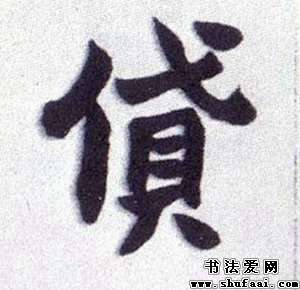 貸
书法爱网
www.shufaai.com